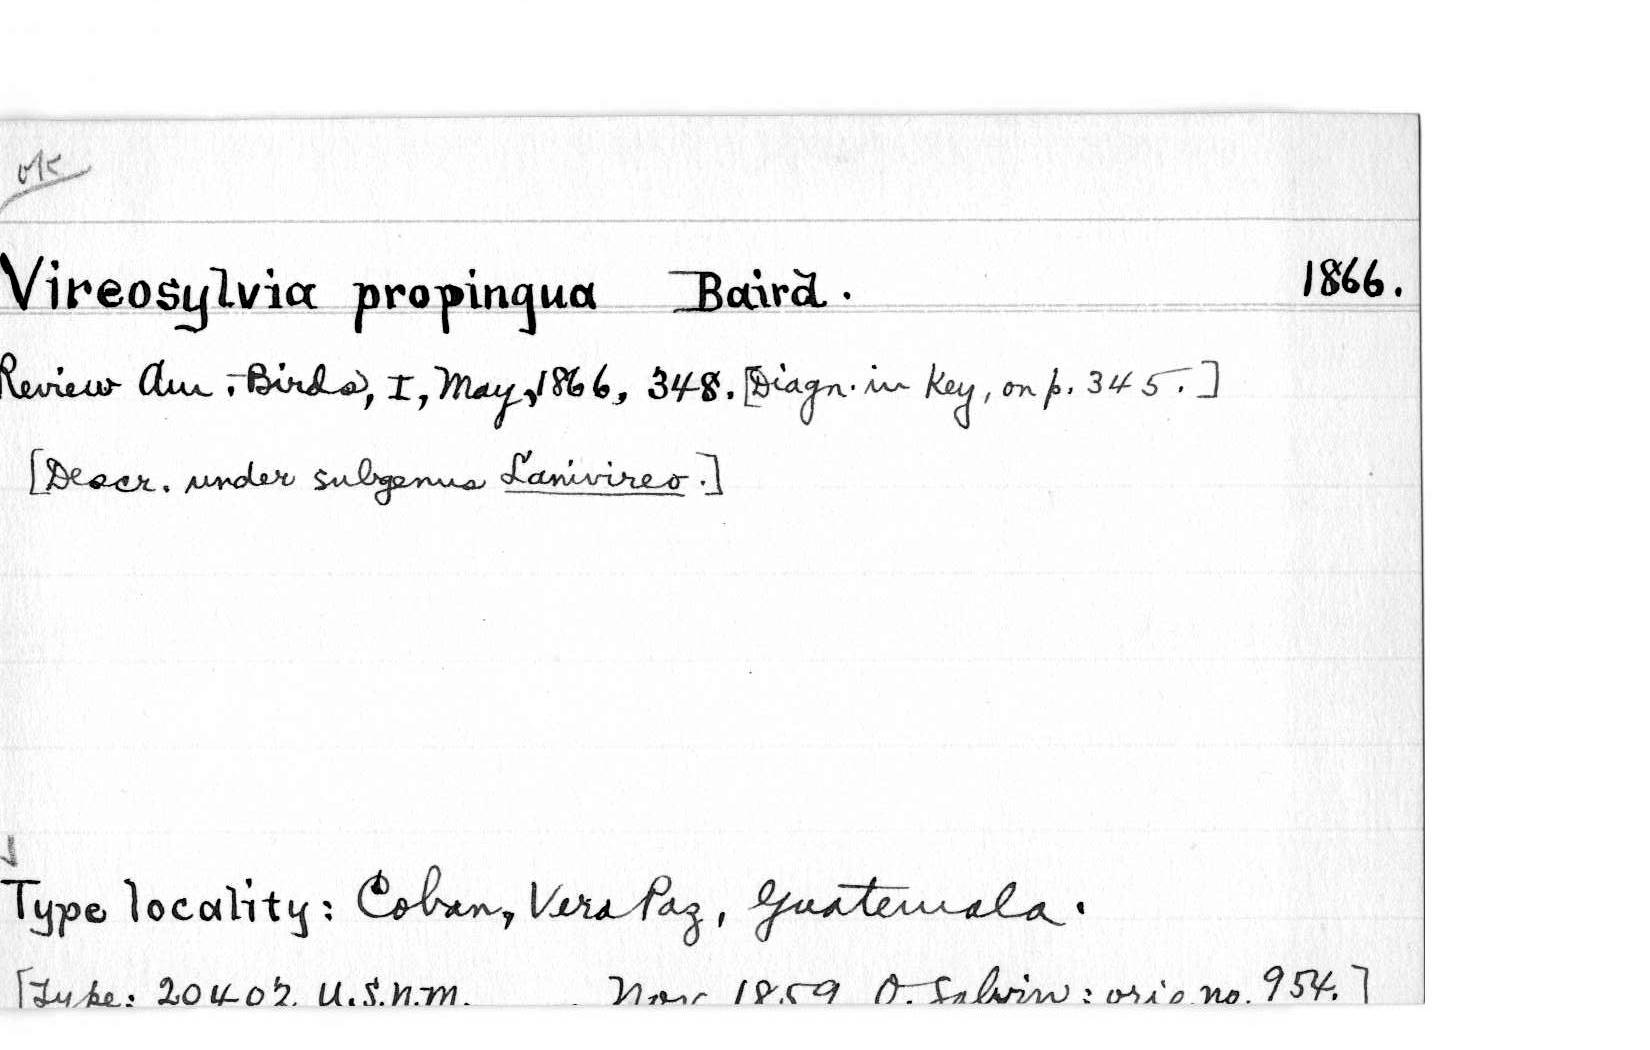 ok
Vireosylvia propinqua Baird. 1866.
Review Am. Birds, I, May, 1866, 348. [Diagn. in Key, on p. 345.]
[Descr. under subgenus Lanivireo.]
Type locality: Coban, Vera Paz, Guatemala.
[Type: 20402. U.S.N.M. Nov 1859 O. Salvin: orig. no. 954.]